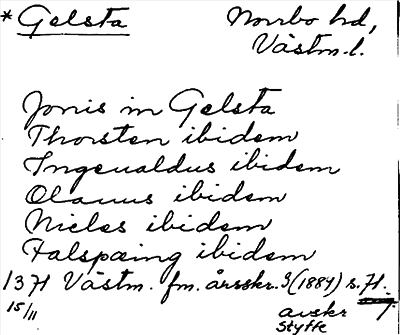 * Gelsta Norrbo hd,
Västm. l.
Jonis in Gelsta
Thorsten ibidem
Ingeualdus ibidem
Olauus ibidem
Nicles ibidem
Falspæing ibidem
1371 Västm. fm. årsskr. 3 (1884) s. 71.
15/11
avskr
Styffe